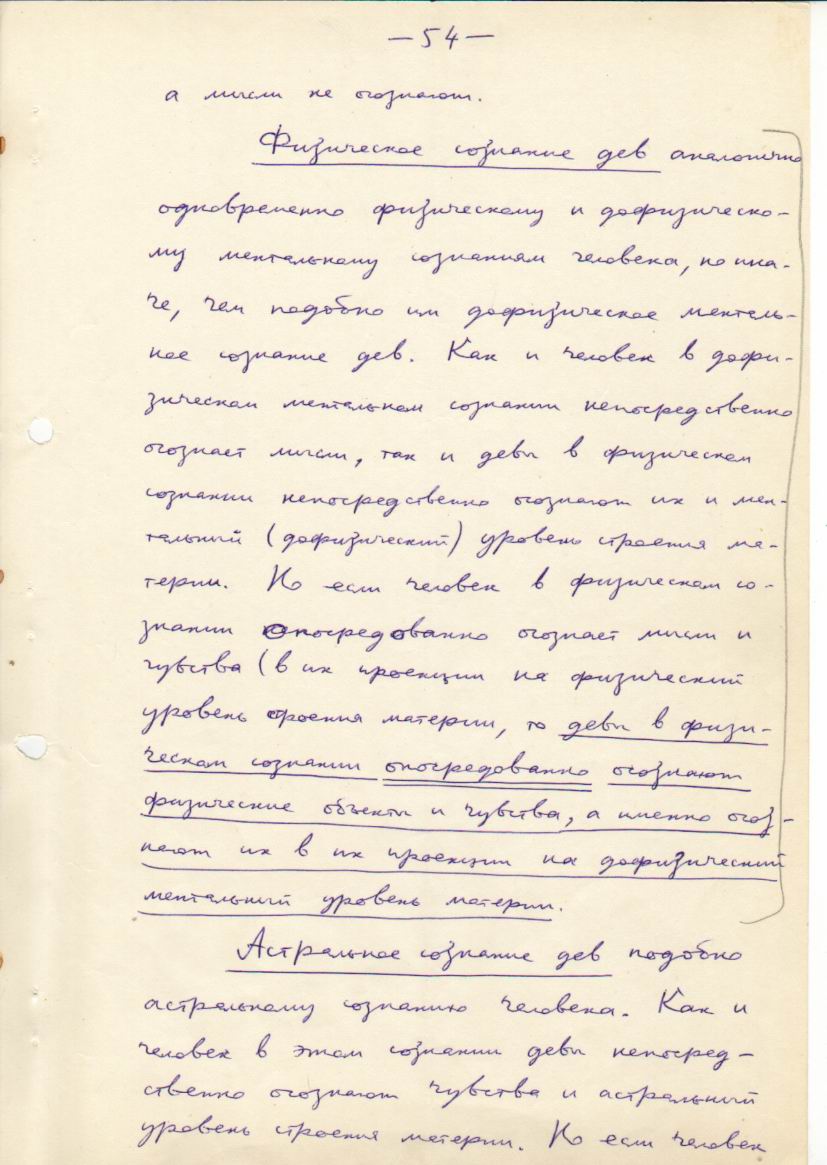 —54—
а мысли не осознают.
Физическое сознание дев аналогично
одновременно физическому и дофизическо-
му ментальному сознаниям человека, но ина-
че, чем подобно им дофизическое менталь-
ное сознание дев. Как и человек в дофи-
зическом ментальном сознании непосредственно
осознает мысли, так и девы в физическом
сознании непосредственно осознают их и мен-
тальный (дофизический) уровень строения ма-
терии. Но если человек в физическом со-
знании опосредованно осознает мысли и
чувства (в их проекции на физический
уровень строения материи, то девы в физи-
ческом сознании опосредованно осознают
физические объекты и чувства, а именно осоз-
нают их в их проекции на дофизический
ментальный уровень материи.
Астральное сознание дев подобно
астральному сознанию человека. Как и
человек в этом сознании девы непосред-
ственно осознают чувства и астральный
уровень строения материи. Но если человек